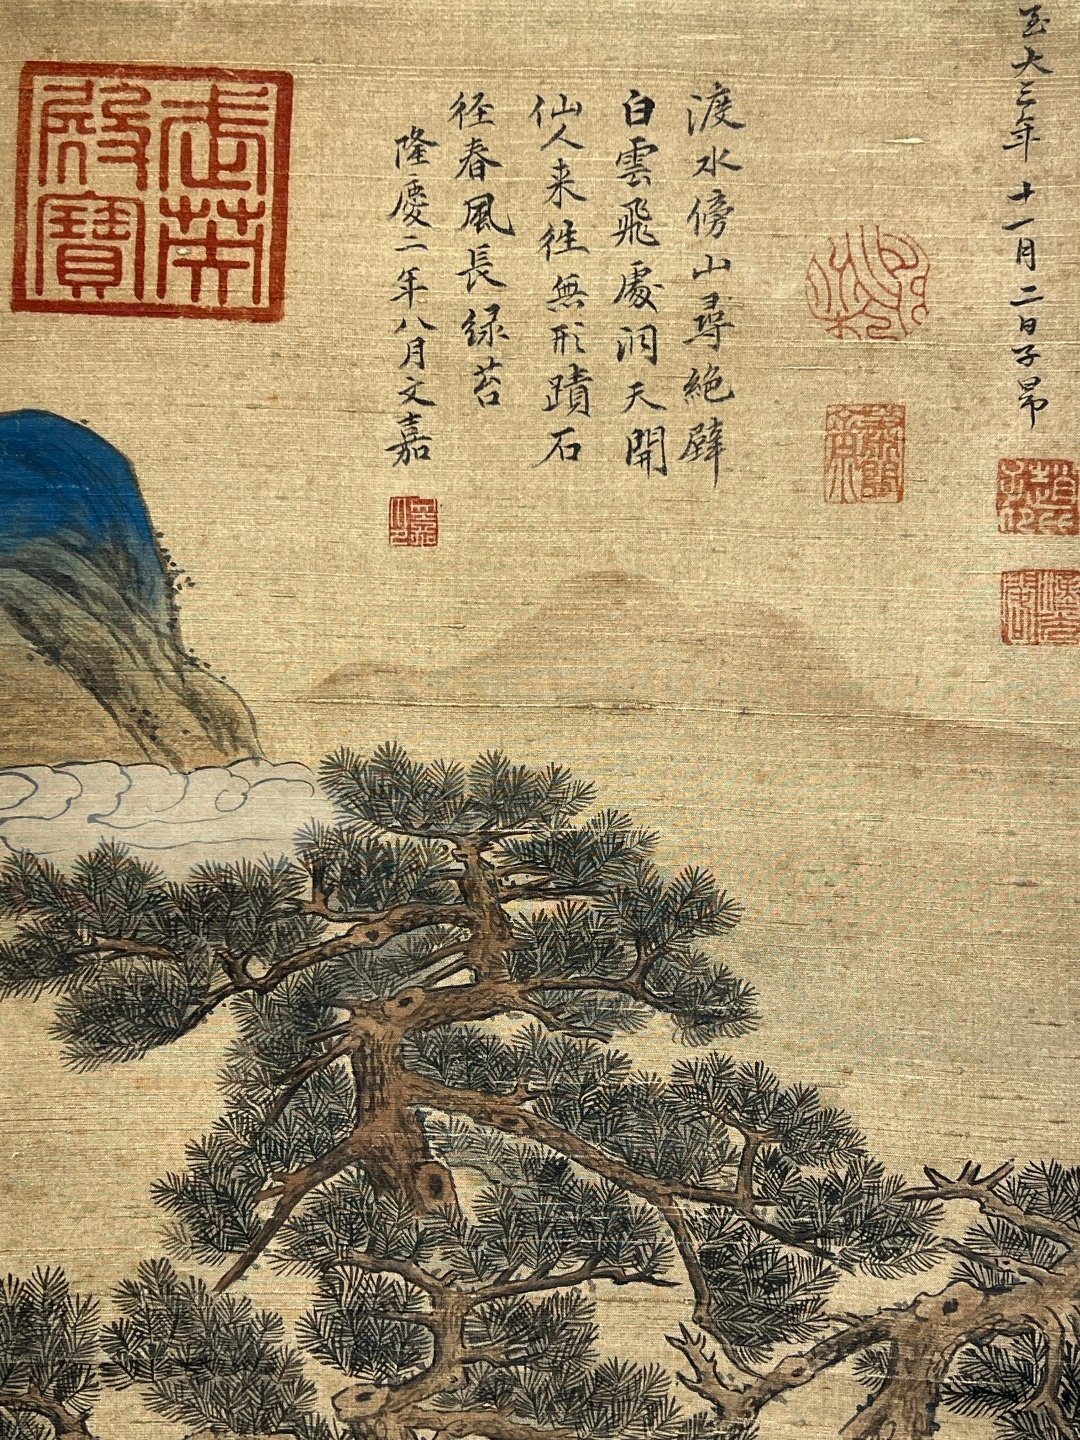 至大三年十一月二日子昂
渡水傍山尋絶壁
白雲飛處洞天開
仙人来往無形蹟石
径春風長緑苔
隆慶二年八月文嘉
武英
殿寶
趙氏
子昂